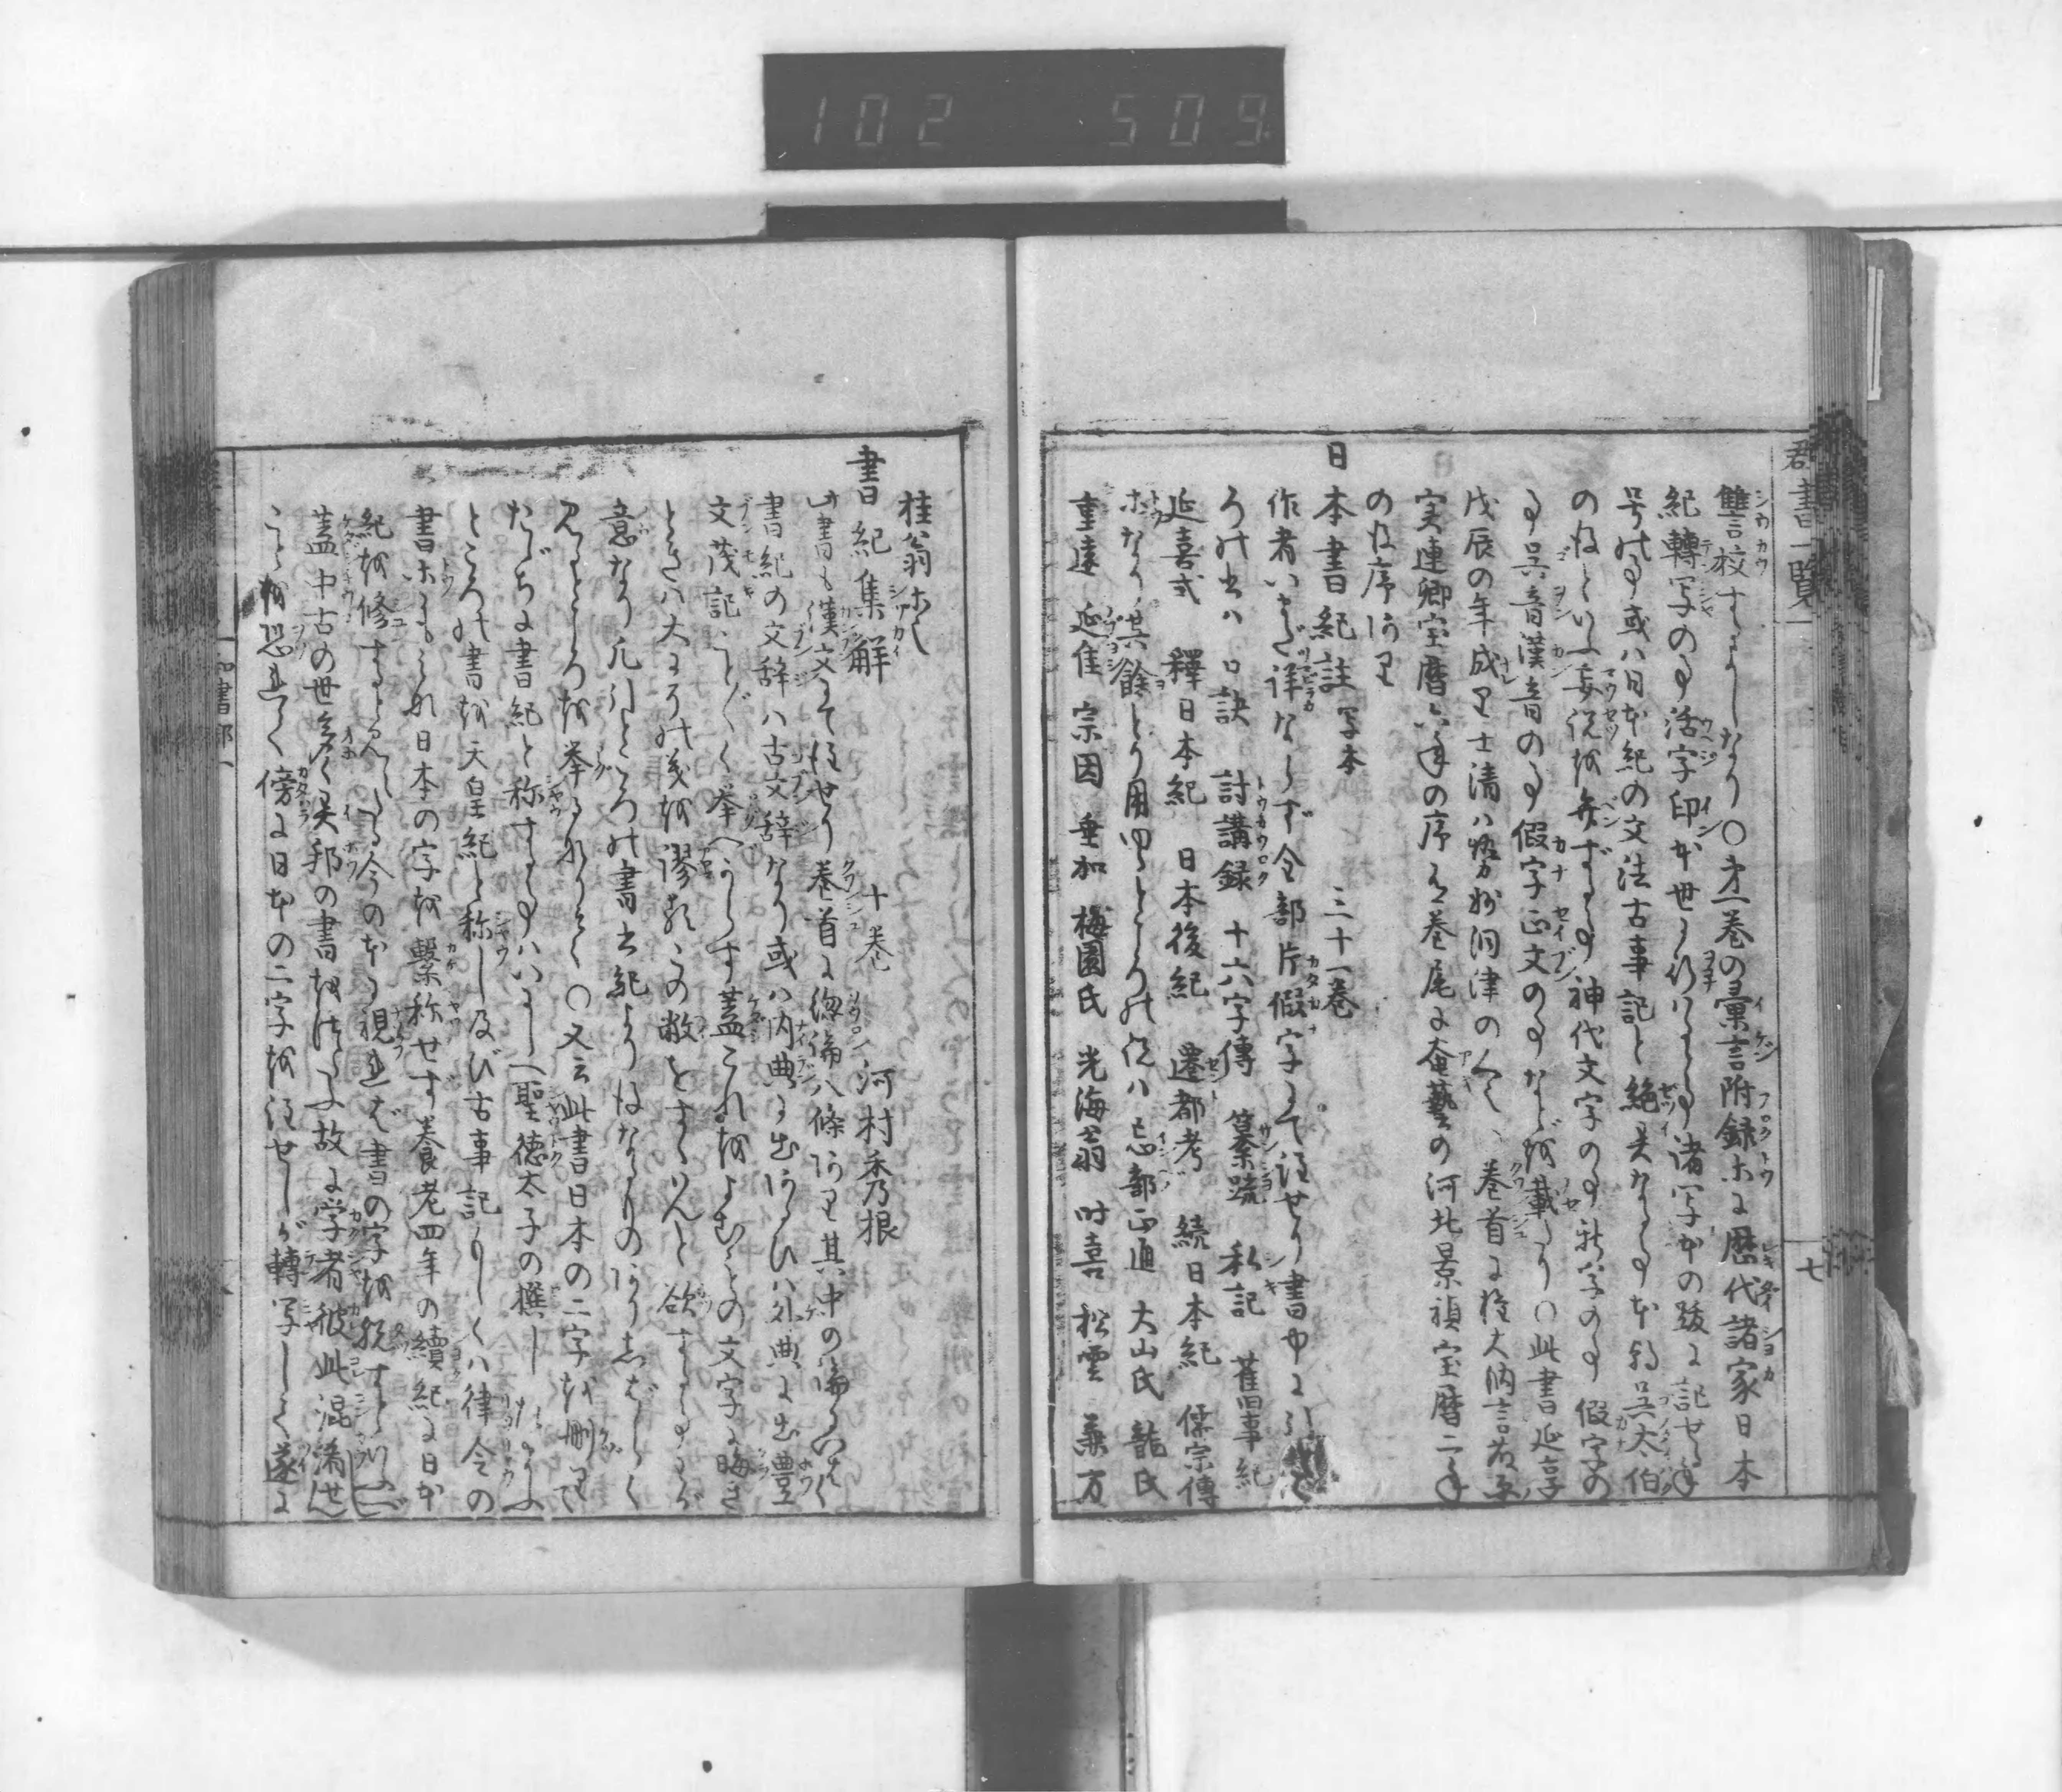 102 509
群書一覧
七
讐校すよしなり〇第一巻の彙言附録等に歴代諸家日本
紀轉写の事活字印本世に行はるゝ事諸写本の跋に記せる年
号の事或ハ日本紀の文法古事記と絶異なる事本朝呉太伯
の後といふ妄説を弁ずる事神代文字の事新字の事假字の
事呉音漢音の事假字正文の事などを載たり〇此書延享
戊辰の年成れり士清ハ勢州洞津の人也、巻首に権大納言藤原
実連卿宝暦六年の序有巻尾に奄藝の河北景禎宝暦二年
の後序あり
日本書紀註 写本 三十一巻
作者いまだ詳ならず全部片假字にて注せり書中に引
ろの書ハ 口訣 討講録 十六字傳 纂疏 私記 舊事紀
延喜式 釋日本紀 日本後紀 遷都考 続日本紀 儒宗傳
等なり其餘とり用ゆるところの説ハ 忌部正通 大山氏 龍氏
重遠 延佳 宗因 垂加 梅園氏 光海翁 時喜 松雲 兼方
桂翁等也
書紀集解 十巻 河村秀根
此書も漢文にて注せり巻首に惣論八條あり其中の論にいはく
書紀の文辞ハ古文辞なり或ハ内典に出あるひハ外典に出豊
文茂記ことごとく挙べからす蓋これをよむもの文字に晦き
ときハ大にその義を謬れりこの敝をすくはんと欲するが
意なり凡引ところの書書紀より後なるものありしばらく
見るところを挙るなりと〇又云此書日本の二字を刪りて
たゞちに書紀と称する事ハいにし聖徳太子の撰したまふ
ところの書を天皇紀と称し及び古事記もしくハ律令の
書等にもみな日本の字を繋称せず養老四年の續紀に日本
紀を修すとみえたる今の本に視れば書の字を脱すといふべし
蓋中古の世多く異邦の書を伝ふ故に学者彼此混淆せん
ことを恐れて傍に日本の二字を注せしが轉写して遂に